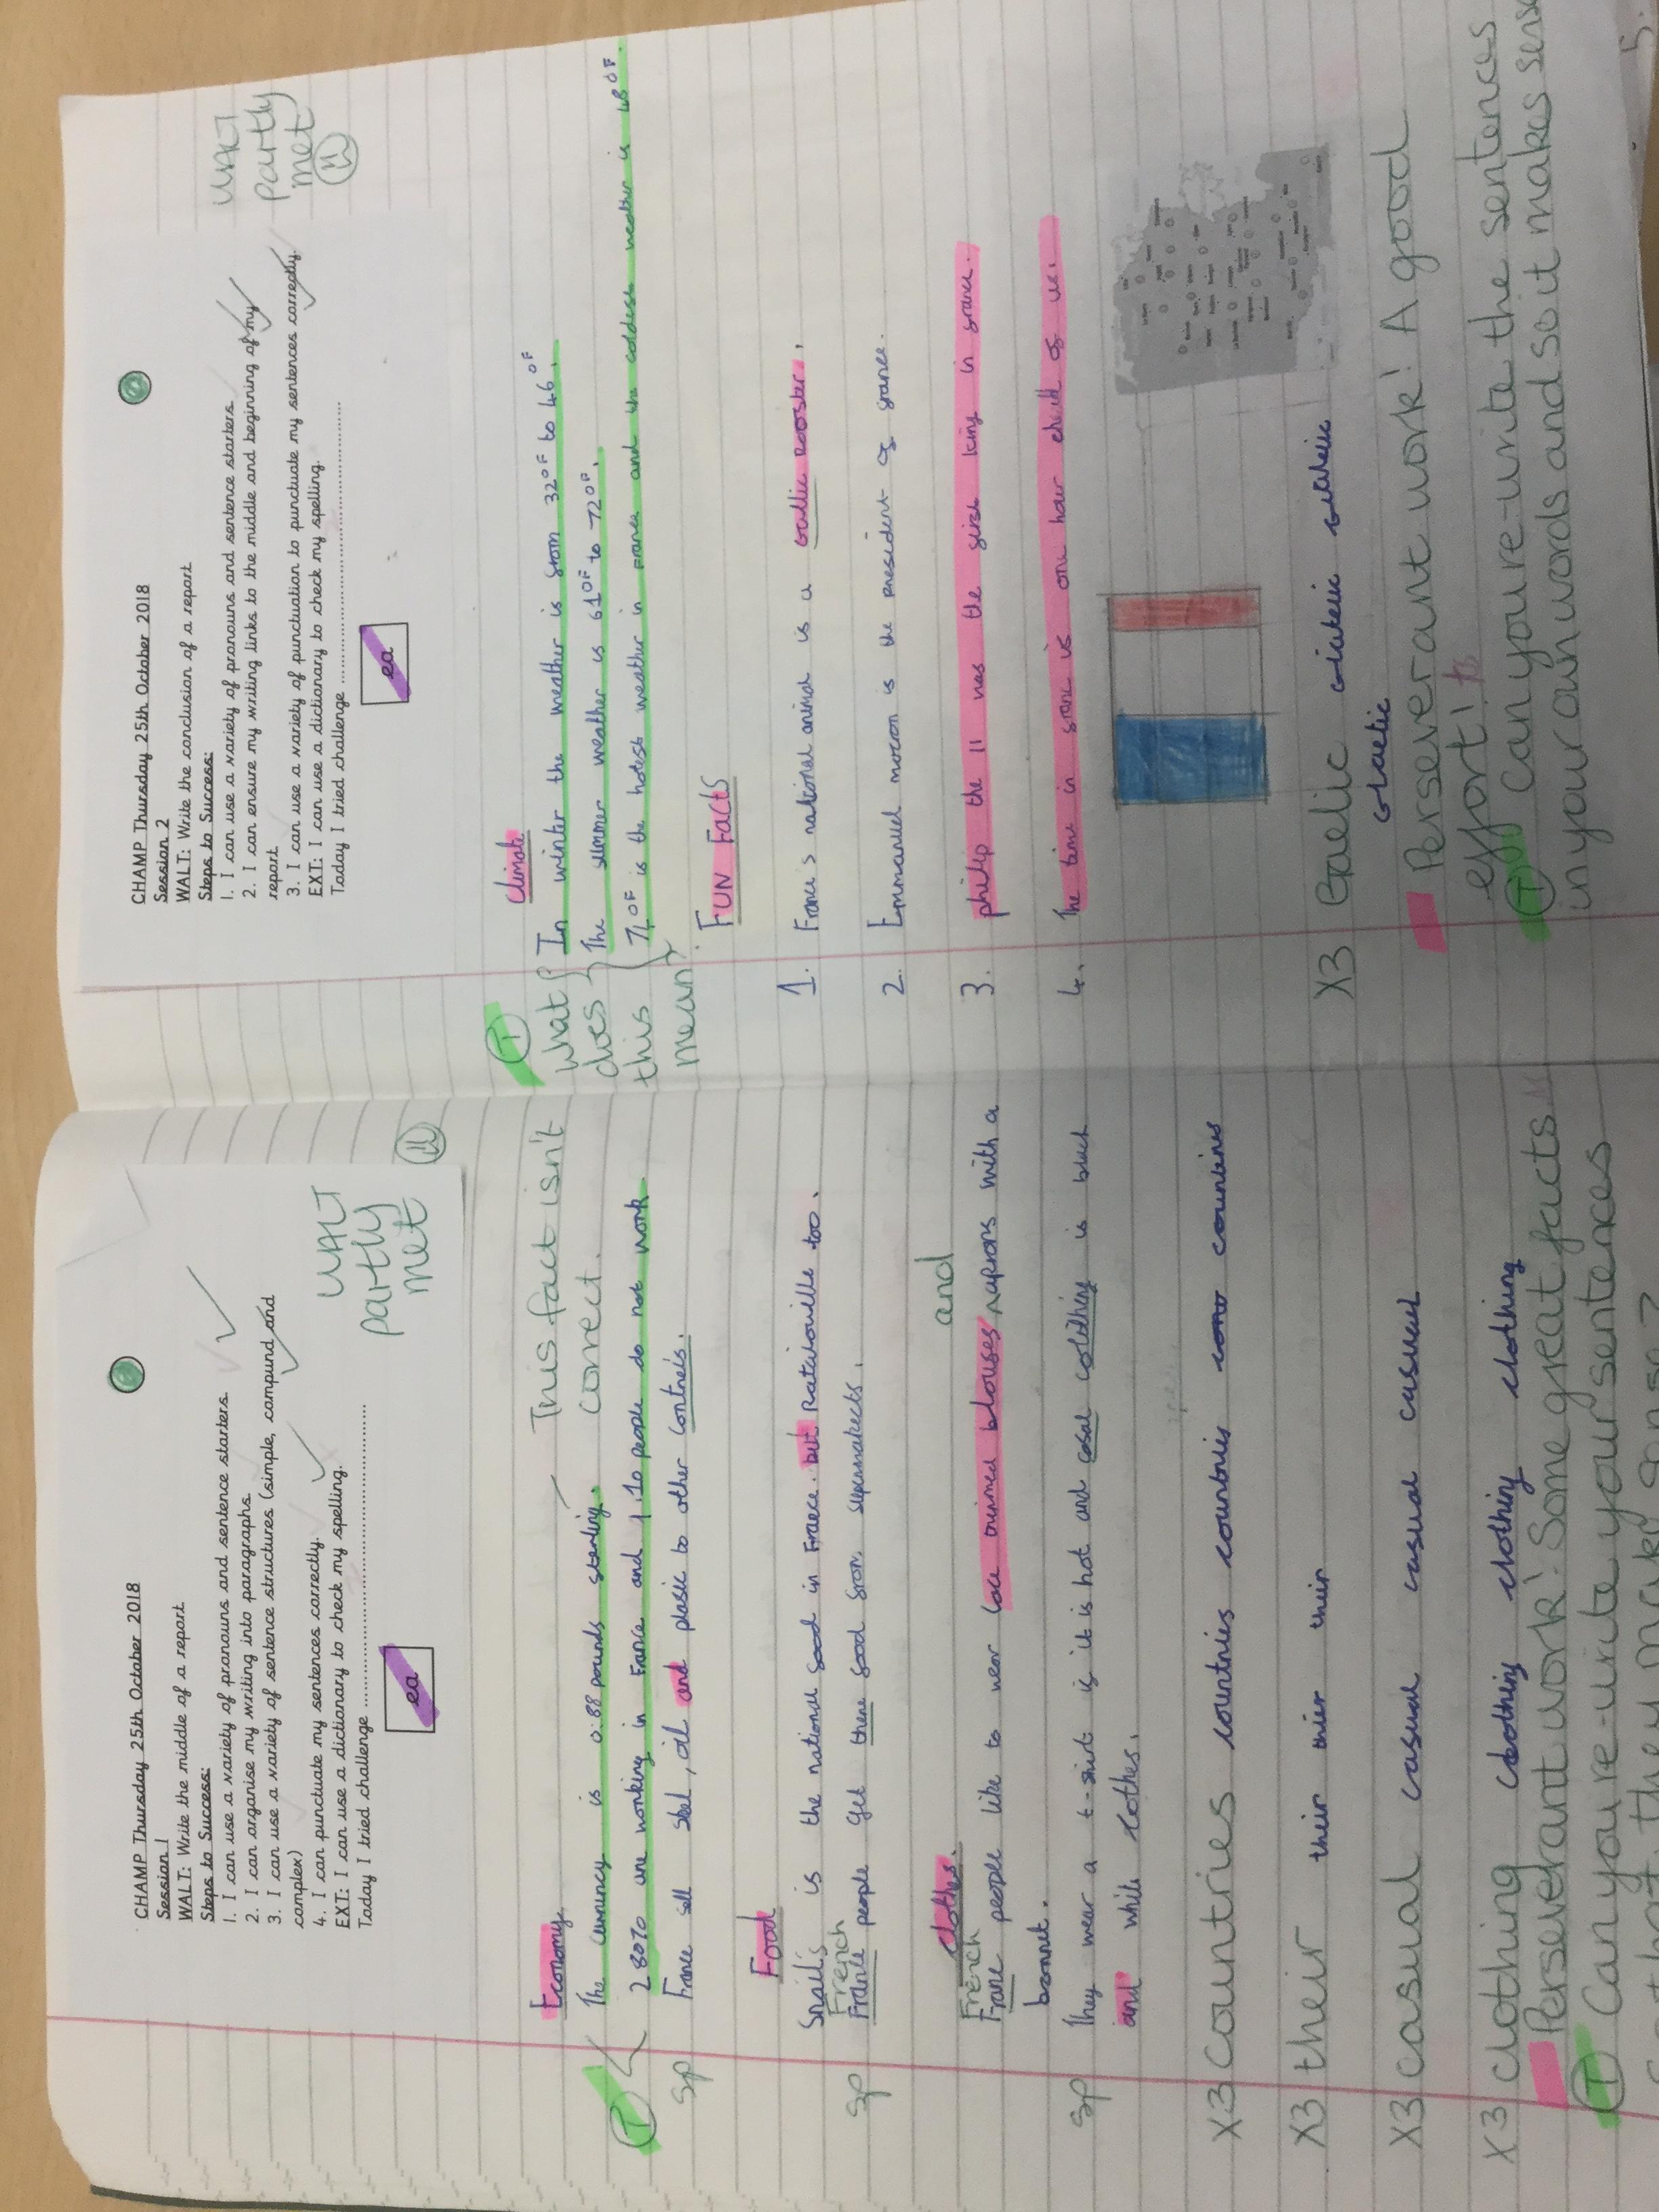 CHAMP Thursday 25th October 2018
Session 1
WALT: Write the middle of a report
Steps to Success:
1. I can use a variety of pronouns and sentence starters.
2. I can organise my writing into paragraphs.
3. I can use a variety of sentence structures (simple, compund and
complex)
4. I can punctuate my sentences correctly.
EXT: I can use a dictionary to check my spelling.
Today I tried challenge
ea
WALT
partly
met
This fact isn't
correct.
Economy.
The currency is 0.88 pounds sterling.
T
280% are working in France and 1.10 people do not work
Sp
France sell steel, oil and plasic to other contries.
Food
Snails is the national food in France. but Ratatouille too.
French
Sp
France people get there food from supermakects.
and
clothes.
French
France people like to wear lace trimmed blouses aprons with a
bonnet.
Sp
They wear a t-shirt if it is hot and casal colthing is black
and white clothes.
X3 countries countries countries countries
X3 their their thier thier their
X3 casual casual casual casual casual
X3 clothing clothing clothing clothing clothing
Perseverant work! Some great facts
T Can you re-write your sentences
so that they make sense?
CHAMP Thursday 25th October 2018
Session 2
WALT: Write the conclusion of a report
Steps to Success:
1. I can use a variety of pronouns and sentence starters.
2. I can ensure my writing links to the middle and beginning of my
report
3. I can use a variety of punctuation to punctuate my sentences correctly.
EXT: I can use a dictionary to check my spelling.
Today I tried challenge
ea
WALT
partly
met
T
What
does
this
mean?
Climate
In winter the weather is from 32°F to 46°F.
The summer weather is 61°F to 72°F.
71°F is the hotest weather in France and the coldest weather is 48°F.
FUN Facts
1. France's national animal is a Gallic rooster.
2. Emmanuel macron is the president of france.
3. philip the II was the first king in france.
4. The time in franc is one hour ehead of us.
X3 Gaelic
Perseverant work! A good
effort!
T Can you re-write the sentences
in your own words and so it makes sense
5.